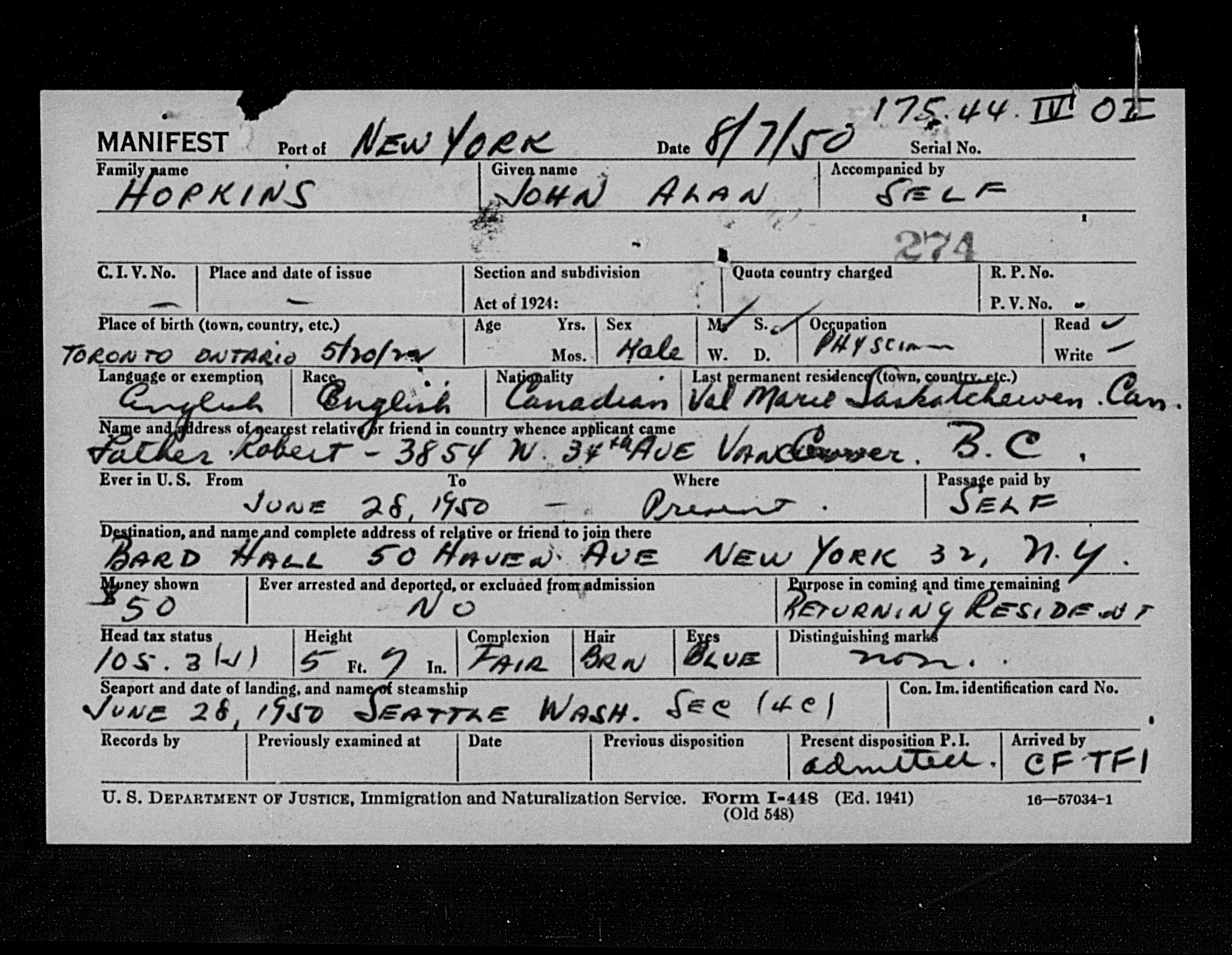 175.44. IV OI
MANIFEST Port of NEW YORK Date 8/7/50 Serial No.
Family name Given name Accompanied by
HOPKINS JOHN ALAN SELF
274
C. I. V. No. Place and date of issue Section and subdivision Quota country charged R. P. No.
— — Act of 1924: P. V. No. -
Place of birth (town, country, etc.) Age Yrs. Sex M. ✓ S. ✓ Occupation Read ✓
TORONTO ONTARIO 5/20/ Mos. Male W. D. Write —
Language or exemption Race Nationality Last permanent residence (town, country, etc.)
English English Canadian Val Marie Saskatchewen. Can.
Name and address of nearest relative or friend in country whence applicant came
Father Robert – 3854 W. 34th AVE VANCouver. B.C.
Ever in U. S. From To Where Passage paid by
JUNE 28, 1950 — Present. SELF
Destination, and name and complete address of relative or friend to join there
BARD HALL 50 HAVEN AVE NEW YORK 32, N.Y.
Money shown Ever arrested and deported, or excluded from admission Purpose in coming and time remaining
$50 NO RETURNING RESIDENT
Head tax status Height Complexion Hair Eyes Distinguishing marks
105.3 5 Ft. 7 In. FAIR BRN BLUE non.
Seaport and date of landing, and name of steamship Con. Im. identification card No.
JUNE 28, 1950 SEATTLE WASH. SEC (4C)
Records by Previously examined at Date Previous disposition Present disposition P. I. Arrived by
admitted. CF-TFI
U. S. DEPARTMENT OF JUSTICE, Immigration and Naturalization Service. Form I-448 (Ed. 1941) 16—57034-1
(Old 548)